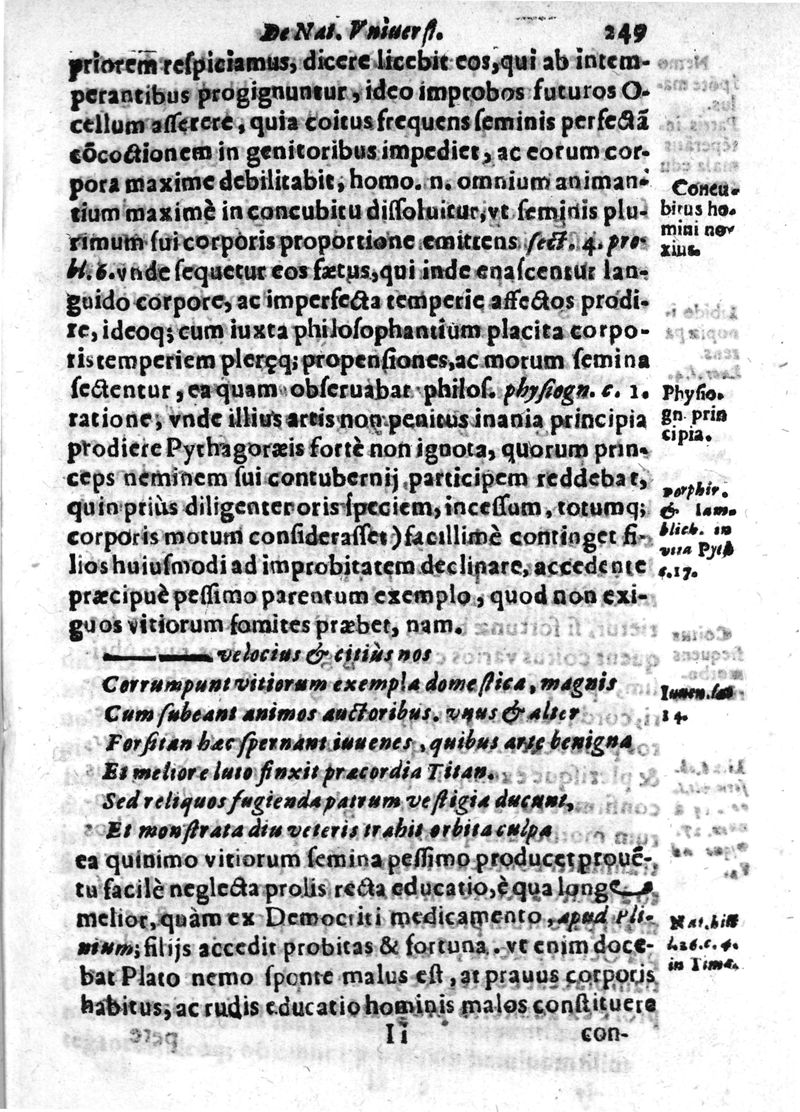 De Nat. Vniuerſi. 249
priorem reſpiciamus, dicere licebit eos, qui ab intem-
perantibus progignuntur, ideo improbos futuros O-
cellum aſſerere, quia coitus frequens ſeminis perfectā
cōcoctionem in genitoribus impediet, ac eorum cor-
pora maxime debilitabit, homo. n. omnium animan-
tium maximè in concubitu diſſoluitur, vt ſeminis plu-
rimum ſui corporis proportione emittens ſect. 4. pro-
bl. 6. vnde ſequetur eos fætus, qui inde enaſcentur lan-
guido corpore, ac imperfecta temperie affectos prodi-
re, ideoq; cum iuxta philoſophantium placita corpo-
ris temperiem pleręq; propenſiones, ac morum ſemina
ſectentur, ea quam obſeruabat philoſ. phyſiogn. c. 1.
ratione, vnde illius artis non penitus inania principia
prodiere Pythagoræis fortè non ignota, quorum prin-
ceps neminem ſui contubernij participem reddebat,
quin priùs diligenter oris ſpeciem, inceſſum, totumq;
corporis motum conſideraſſet) facillimè continget fi-
lios huiuſmodi ad improbitatem declinare, accedente
præcipuè peſſimo parentum exemplo, quod non exi-
guos vitiorum fomites præbet, nam.
velocius & citiùs nos
Corrumpunt vitiorum exempla domeſtica, magnis
Cum ſubeant animos auctoribus. vnus & alter
Forſitan hæc ſpernant iuuenes, quibus arte benigna
Et meliore luto finxit præcordia Titan.
Sed reliquos fugienda patrum veſtigia ducunt,
Et monſtrata diu veteris trahit orbita culpæ
ea quinimo vitiorum ſemina peſſimo producet prouē-
tu facilè neglecta prolis recta educatio, è qua longe
melior, quàm ex Democriti medicamento, apud Pli-
nium; filijs accedit probitas & fortuna. vt enim doce-
bat Plato nemo ſponte malus eſt, at prauus corporis
habitus, ac rudis educatio hominis malos conſtituere
Ii con-
Concu-
bitus ho-
mini no-
xius.
Phyſio-
gn. prin
cipia.
porphir.
& Iam-
blich. in
vita Pyth
c. 17.
Iuuen. ſat.
14.
Nat. hiſt
l. 26. c. 4.
in Time.